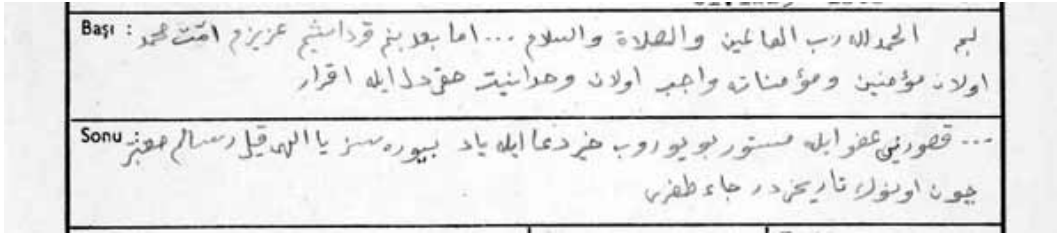 Başı : بسم الحمد لله رب العالمين والصلاة والسلام ... اما بعد بنم قرداشم عزيزم امّت محمد
اولان مؤمنين ومؤمناته واجب اولان وحدانيت حق دل ايله اقرار
Sonu ... قصوريني عفو ايله مستور بويوروب خير دعا ايله ياد بيوره سز يا الهى قيل رسالم معتبر
چون اونوڭ تاريخيدر جاء ظفر